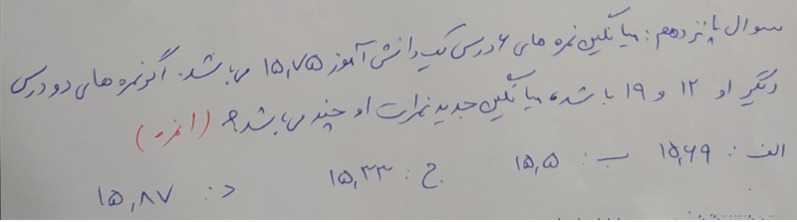 سوال پانزدهم: میانگین نمره های ۶ درس یک دانش آموز ۱۵,۷۵ می باشد. اگر نمره های دو درس
دیگر او ۱۲ و ۱۹ باشد، میانگین جدید نمرات او چند می باشد؟ (۱ نمره)
الف: ۱۵,۶۹ ب: ۱۵,۵ ج: ۱۵,۳۳ د: ۱۵,۸۷